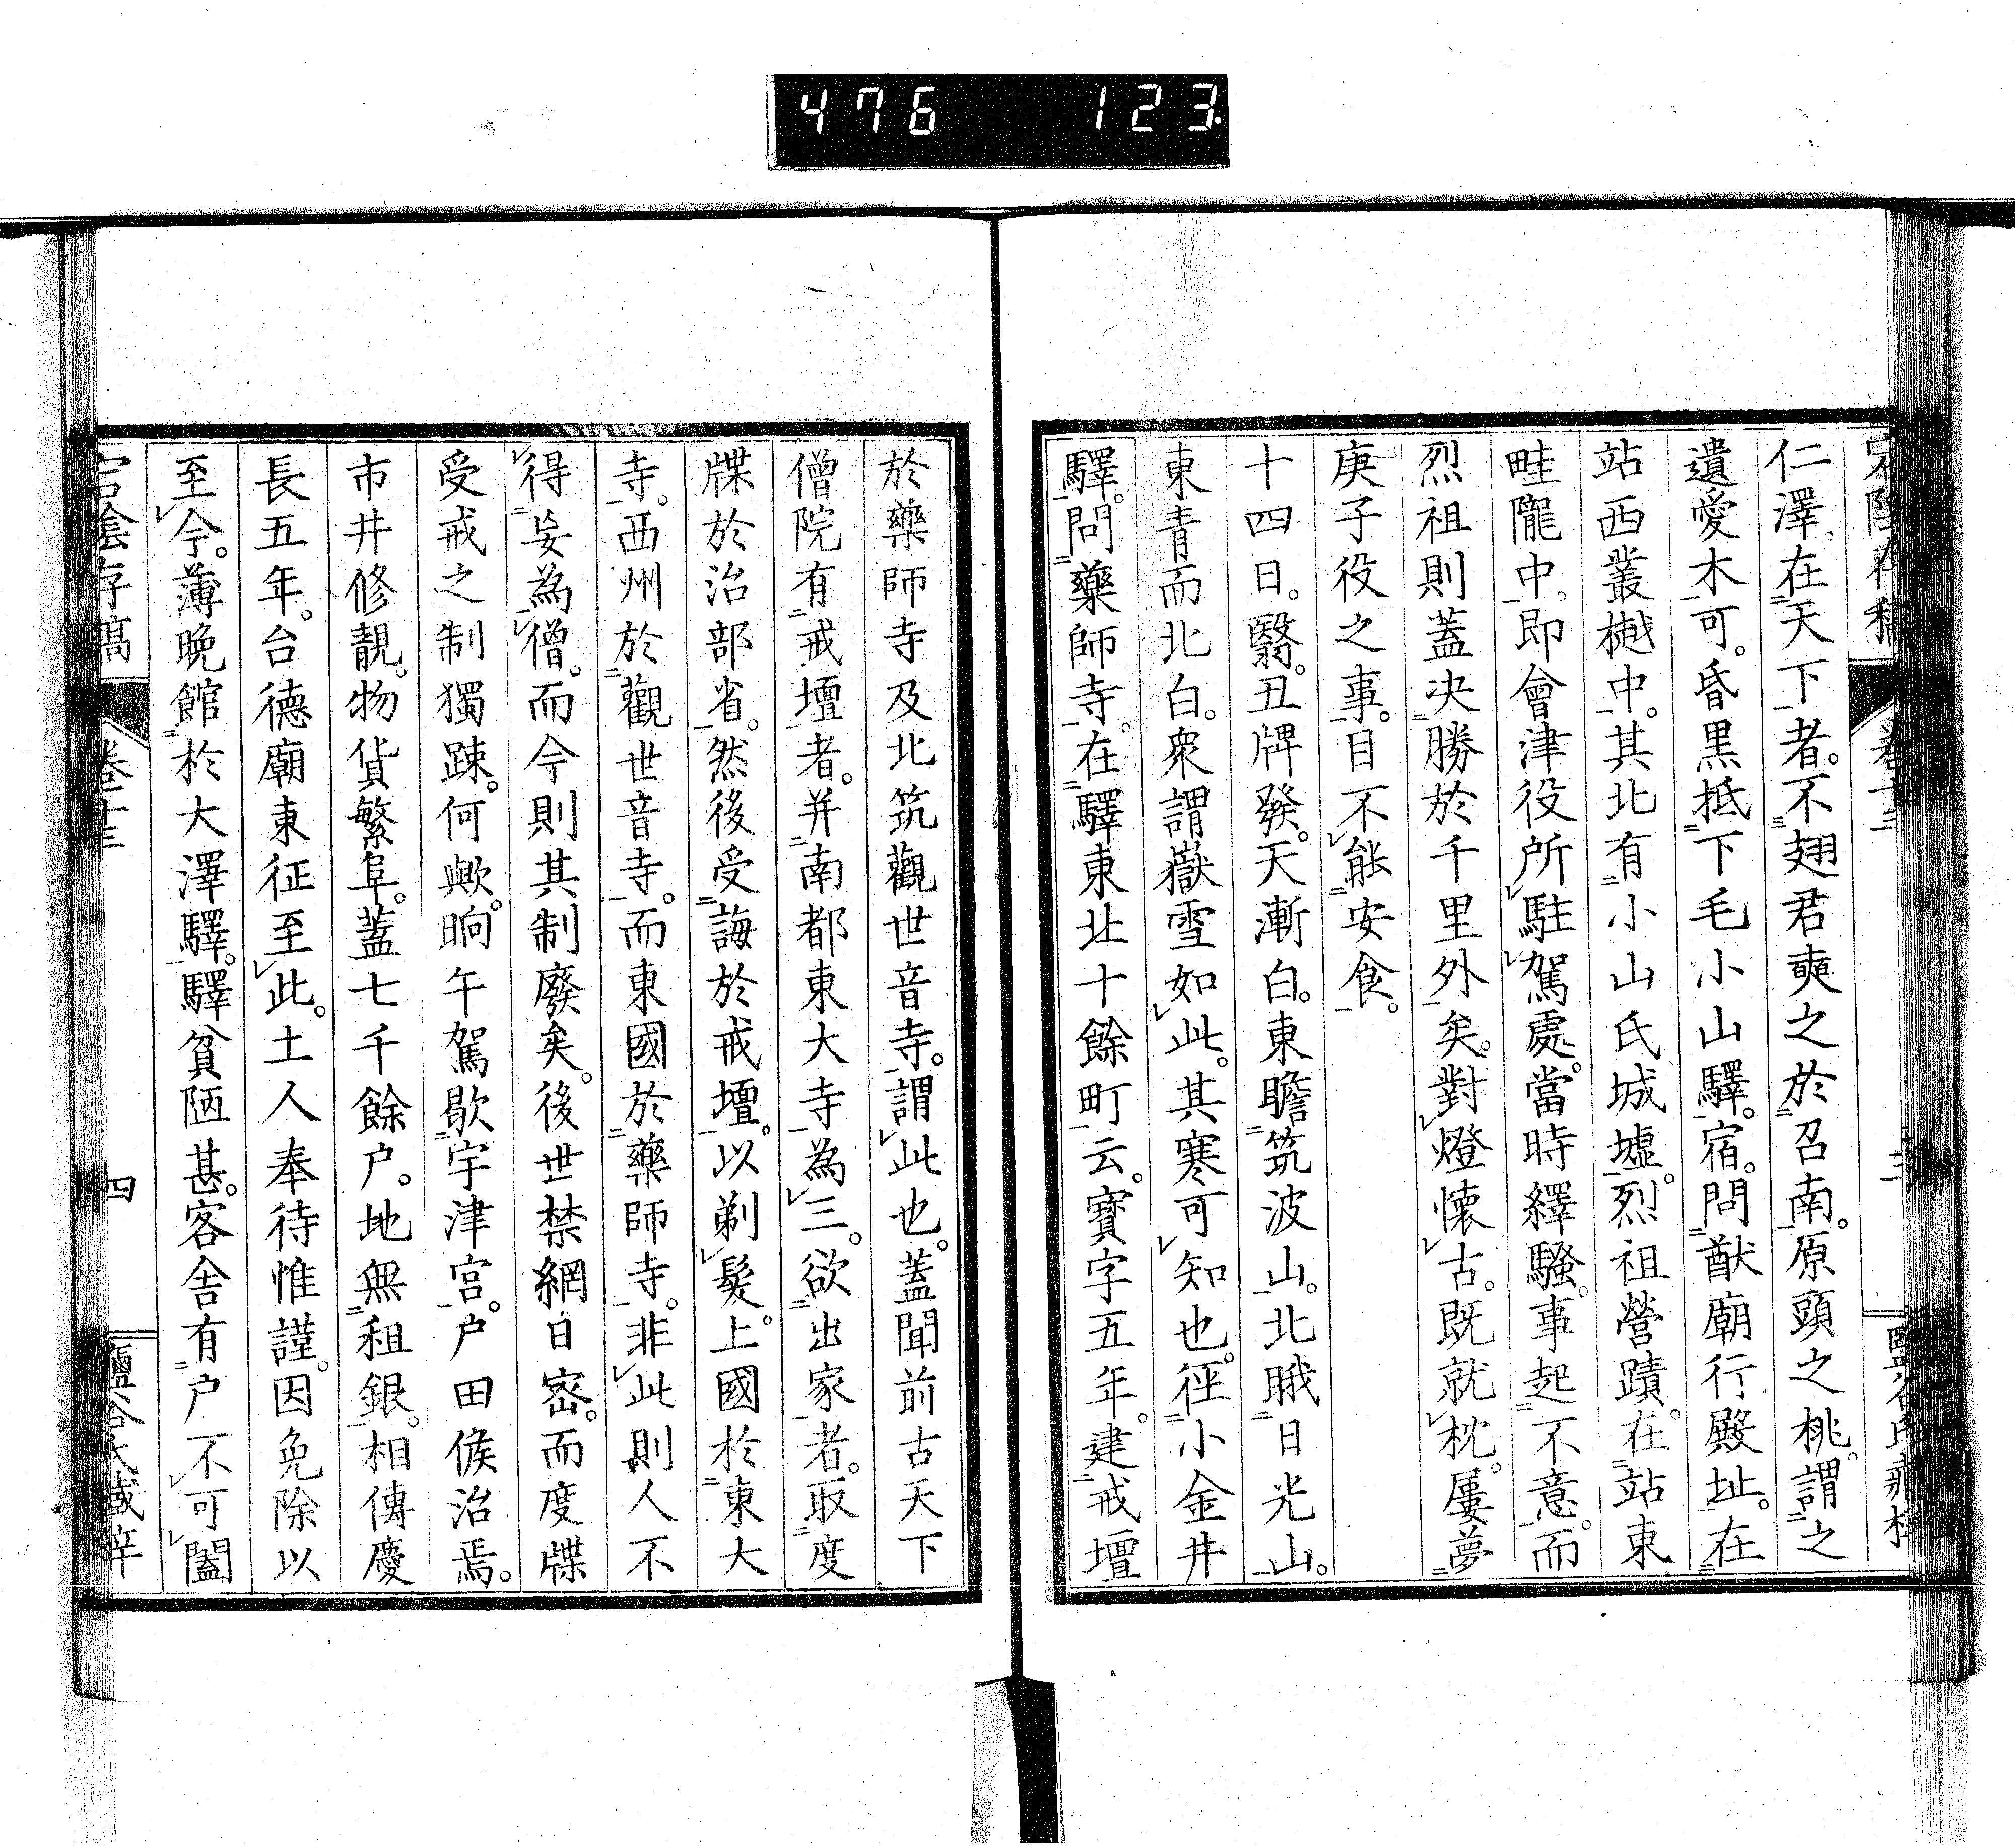 476 123
仁澤在天下者。不翅君奭之於召南。原頭之桃。謂之
遺愛木可。昏黒抵下毛小山驛。宿。問猷廟行殿址。在
站西叢樾中。其北有小山氏城墟。烈祖營蹟。在站東
畦隴中。即會津役所駐駕處。當時繹騷。事起不意。而
烈祖則蓋决勝於千里外矣。對燈懷古。既就枕。屢夢
庚子役之事。目不能安食。
十四日。翳。丑牌發。天漸白。東瞻筑波山。北睋日光山。
東青而北白。衆謂嶽雪如此。其寒可知也。徑小金井
驛。問藥師寺。在驛東北十餘町云。寳字五年。建戒壇
於藥師寺及北筑觀世音寺。謂此也。蓋聞前古天下
僧院有戒壇者。并南都東大寺為三。欲出家者。取度
牒於治部省。然後受誨於戒壇。以剃髮。上國於東大
寺。西州於觀世音寺。而東國於藥師寺。非此則人不
得妄為僧。而今則其制廢矣。後世禁網日密。而度牒
受戒之制獨踈。何歟。晌午駕歇宇津宮。户田侯治焉。
市井修靚。物貨繁阜。蓋七千餘户。地無租銀。相傳慶
長五年。台德廟東征至此。土人奉待惟謹。因免除以
至今。薄晩館於大澤驛。驛貧陋甚。客舎有户不可闔
卷十三
四